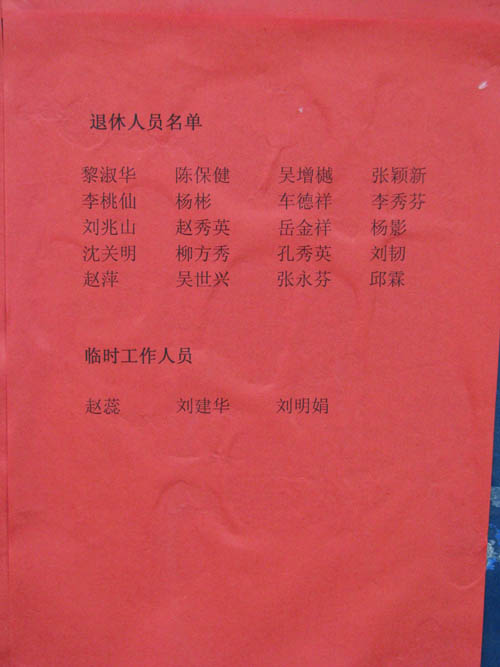 退休人员名单
黎淑华 陈保健 吴增樾 张颖新
李桃仙 杨彬 车德祥 李秀芬
刘兆山 赵秀英 岳金祥 杨影
沈关明 柳方秀 孔秀英 刘韧
赵萍 吴世兴 张永芬 邱霖
临时工作人员
赵蕊 刘建华 刘明娟